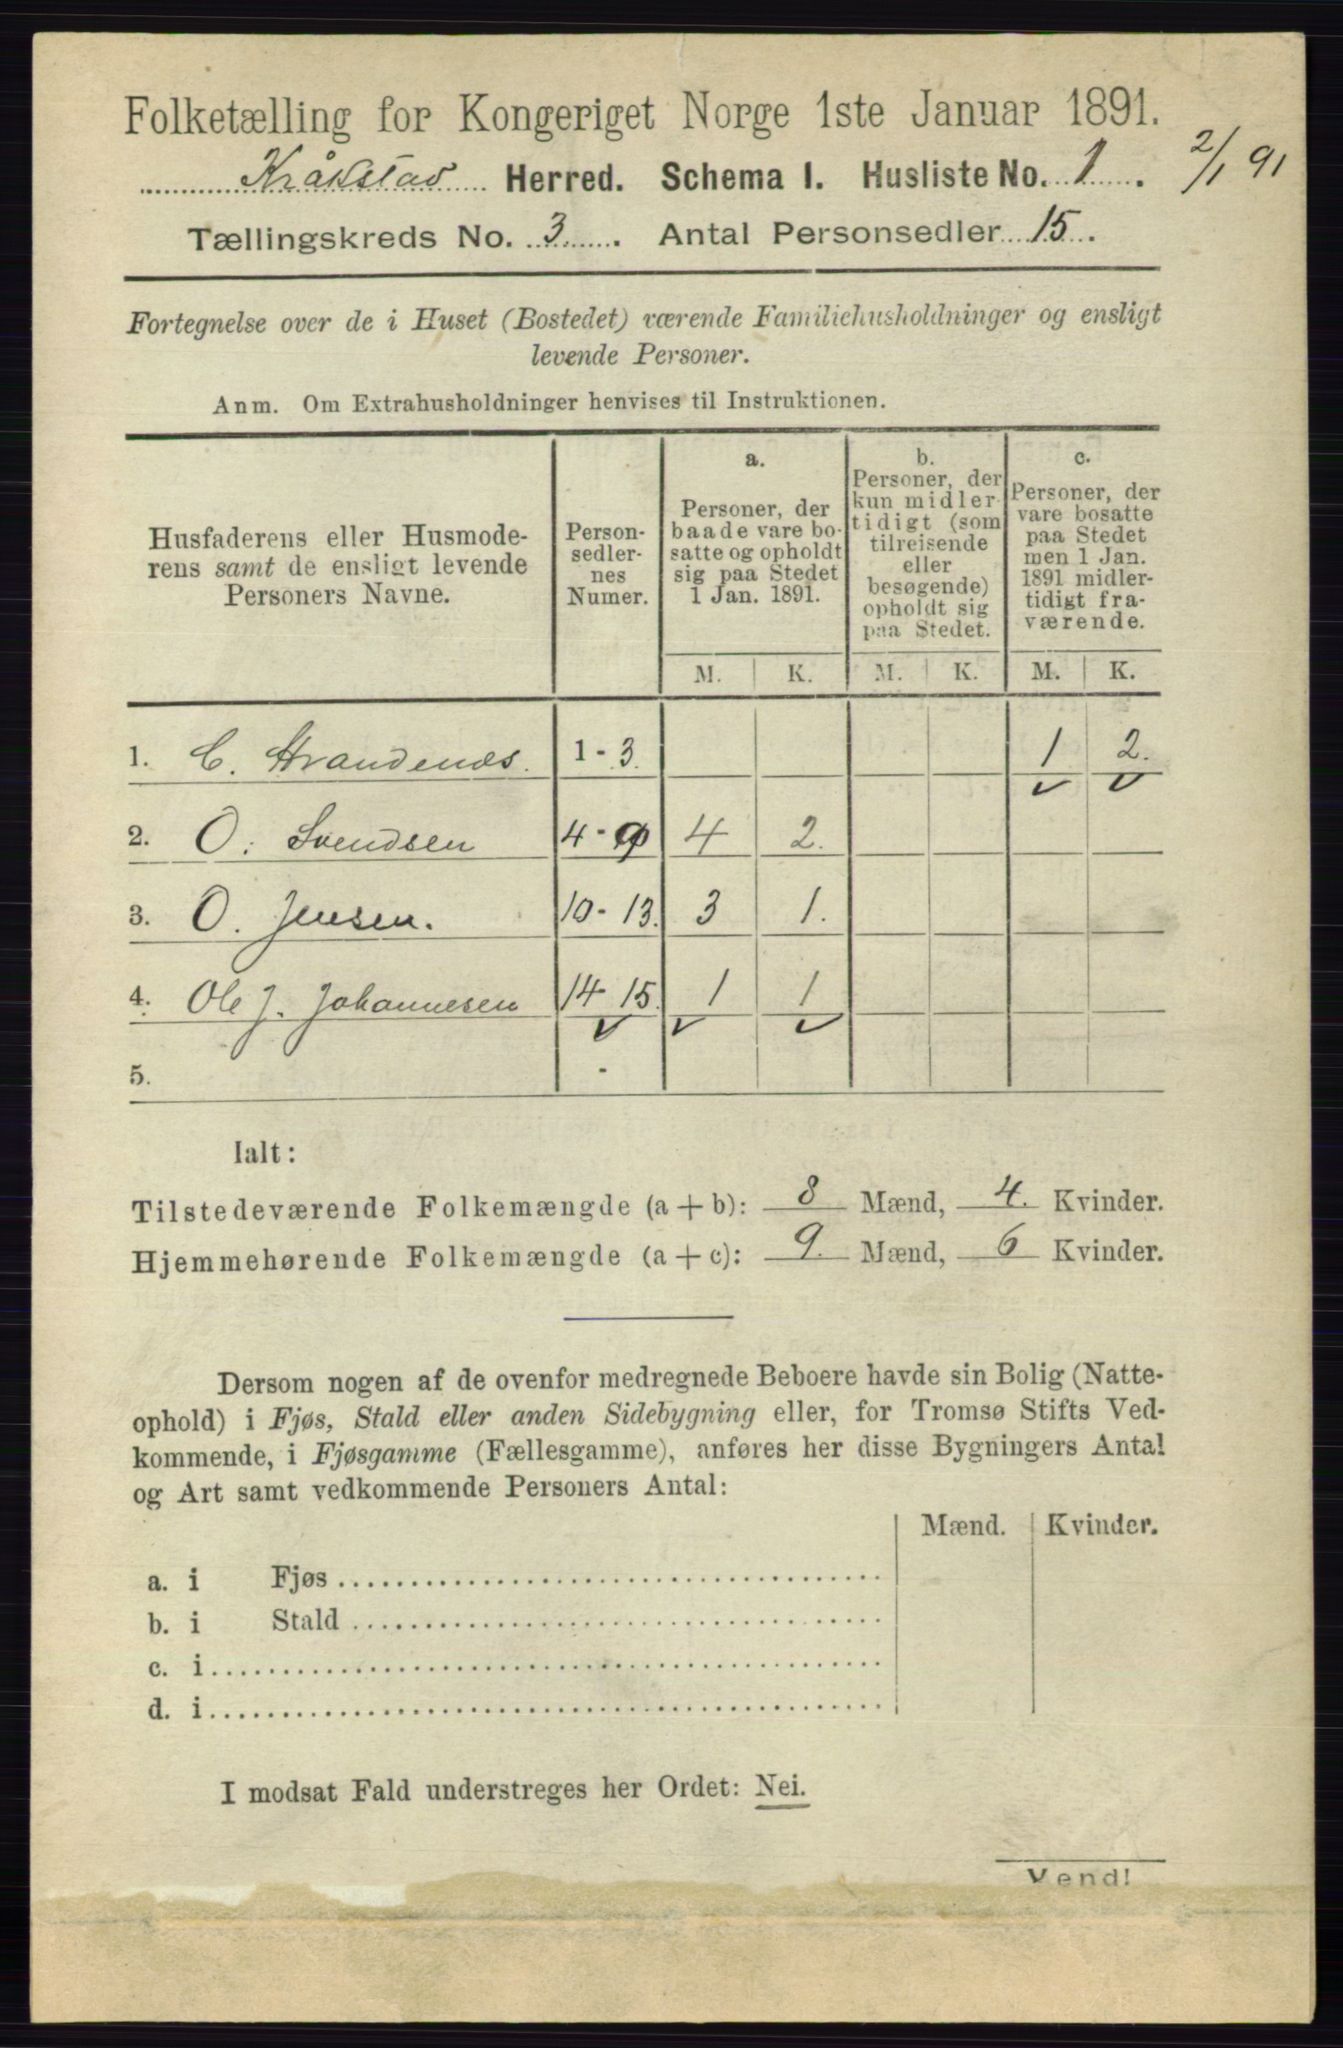 Folketælling for Kongeriget Norge 1ste Januar 1891.
Kråkstad Herred. Schema I. Husliste No. 1. 2/1 91
Tællingskreds No. 3. Antal Personsedler 15.
Fortegnelse over de i Huset (Bostedet) værende Familiehusholdninger og ensligt
levende Personer.
Anm. Om Extrahusholdninger henvises til Instruktionen.
Husfaderens eller Husmode-
rens samt de ensligt levende
Personers Navne.
Person-
sedler-
nes
Numer.
a.
Personer, der
baade vare bo-
satte og opholdt
sig paa Stedet
1 Jan. 1891.
b.
Personer, der
kun midler-
tidigt (som
tilreisende
eller
besøgende)
opholdt sig
paa Stedet.
c.
Personer, der
vare bosatte
paa Stedet
men 1 Jan.
1891 midler-
tidigt fra-
værende.
M. K. M. K. M. K.
1. C. Strandenæs. 1-3. 1 2.
2. O. Svendsen 4-9 4 2.
3. O. Jensen. 10-13. 3 1.
4. Ole J. Johannesen 14-15. 1 1
5. -
Ialt:
Tilstedeværende Folkemængde (a + b): 8 Mænd, 4. Kvinder.
Hjemmehørende Folkemængde (a + c): 9. Mænd, 6 Kvinder.
Dersom nogen af de ovenfor medregnede Beboere havde sin Bolig (Natte-
ophold) i Fjøs, Stald eller anden Sidebygning eller, for Tromsø Stifts Ved-
kommende, i Fjøsgamme (Fællesgamme), anføres her disse Bygningers Antal
og Art samt vedkommende Personers Antal:
Mænd. Kvinder.
a. i Fjøs
b. i Stald
c. i
d. i
I modsat Fald understreges her Ordet: Nei.
Vend!